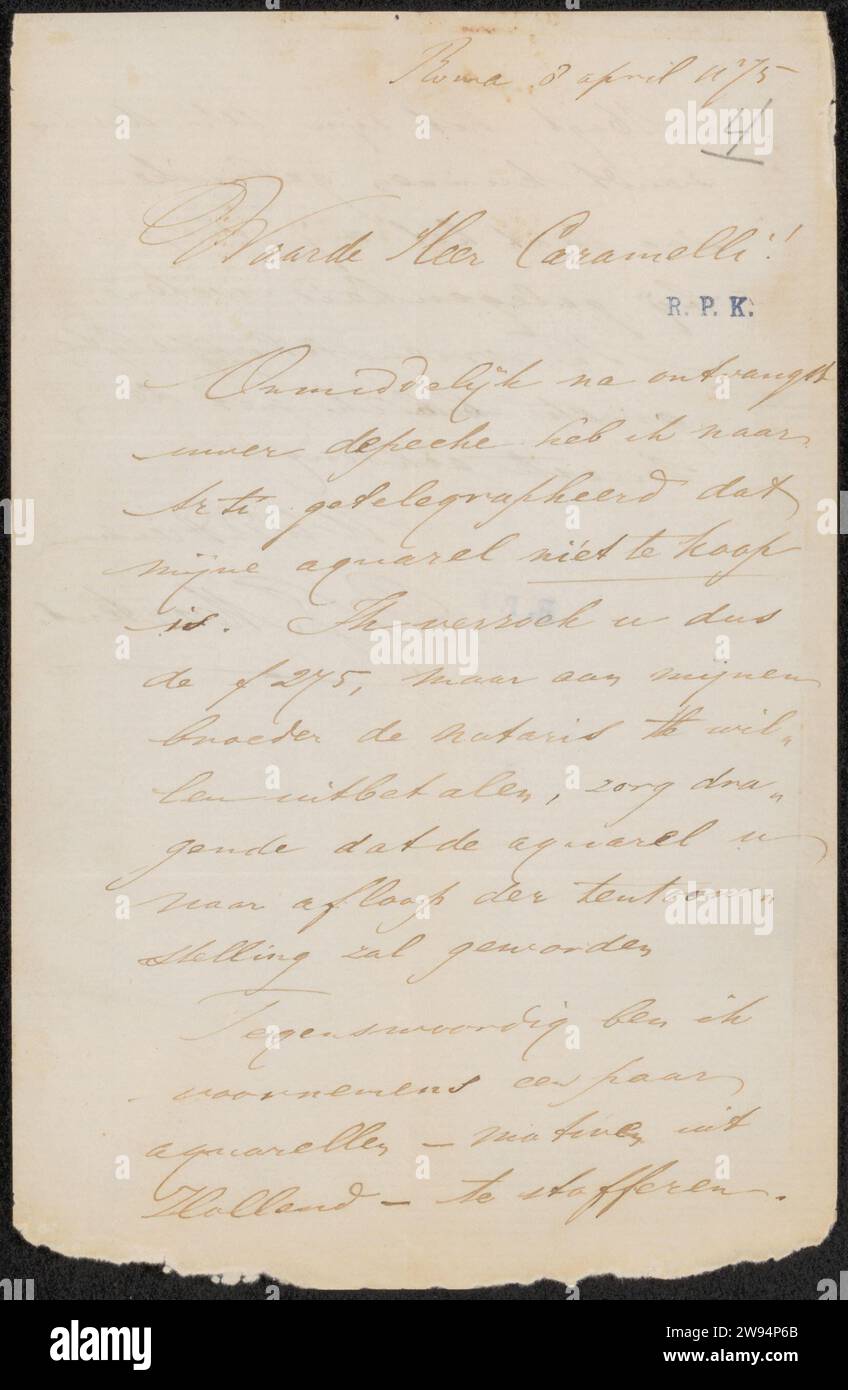 Roma 8 april 1875
4
Waarde Heer Caramelli!
R. P. K.
Onmiddelijk na ontvangst
uwer depeche heb ik naar
Arti getelegrapheerd dat
mijne aquarel niet te koop
is. Ik verzoek u dus
de f 275, maar aan mijnen
broeder de notaris te wil„
len uitbetalen, zorg dra„
gende dat de aquarel u
naar afloop der tentoon„
stelling zal geworden
Tegenswoordig ben ik
voornemens een paar
aquarellen – motiven uit
Hollend – te stofferen.
alamy
Image ID: 2W94P6B
www.alamy.com